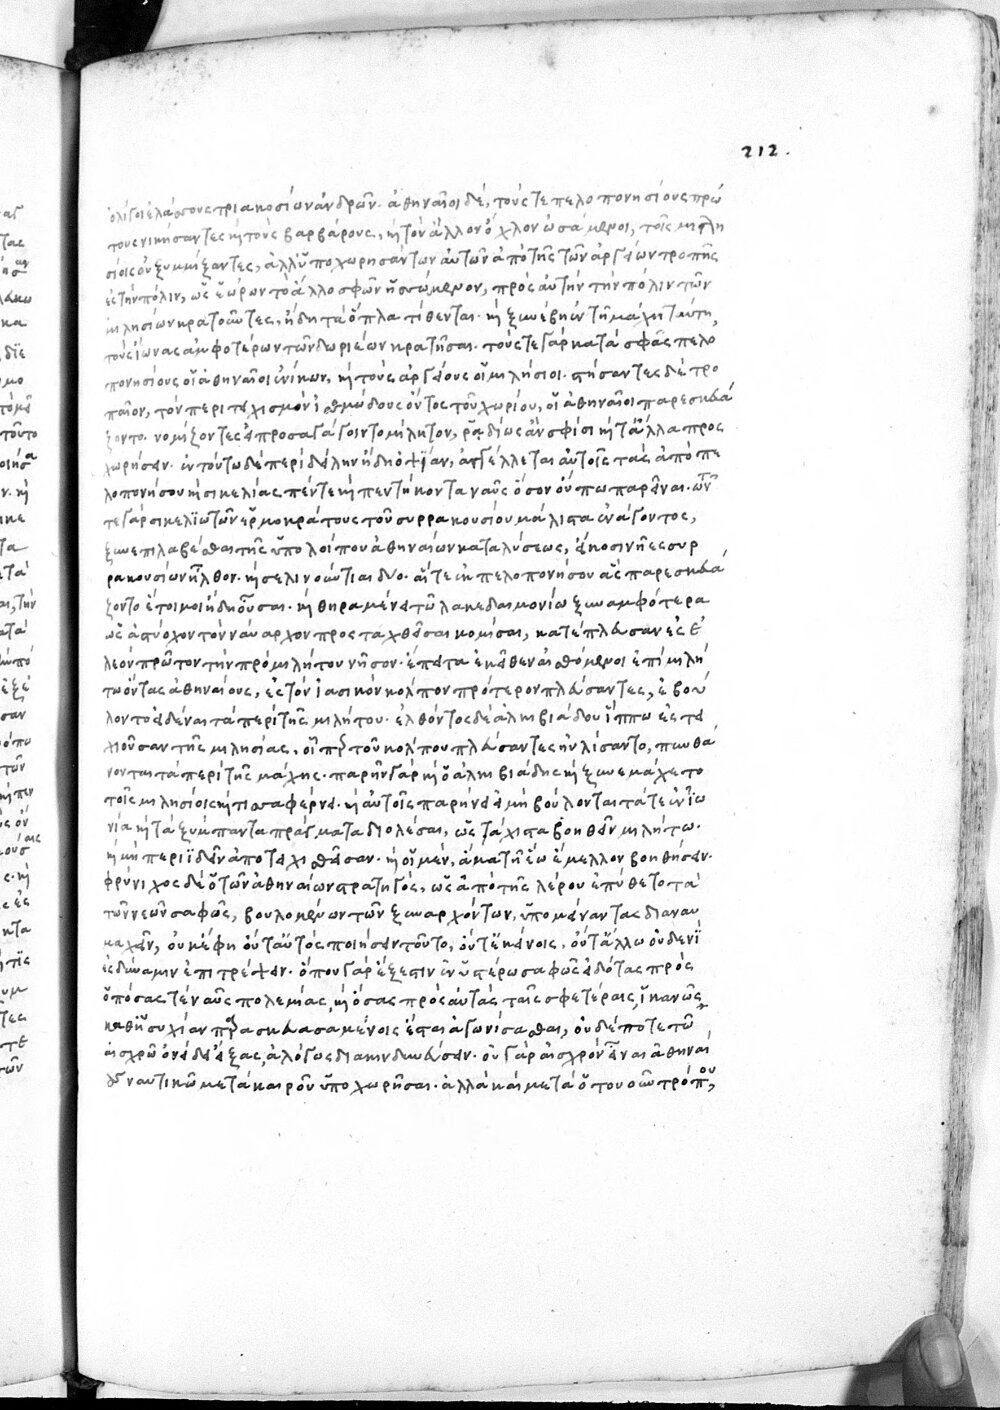 212.
ὀλίγοι ἐλάσσους τριακοσίων ἀνδρῶν. ἀθηναῖοι δέ, τούς τε πελοπονησίους πρώ
τους νικήσαντες καὶ τοὺς βαρβάρους, καὶ τὸν ἄλλον ὄχλον ὠσάμενοι, τοῖς μιλη
σίοις οὐ ξυμμίξαντες, ἀλλ' ὑποχωρησάντων αὐτῶν ἀπὸ τῆς τῶν ἀργείων τροπῆς
ἐς τὴν πόλιν, ὡς ἑώρων τὸ ἄλλο σφῶν ἡσσώμενον, πρὸς αὐτὴν τὴν πόλιν τῶν
μιλησίων κρατοῦντες, ἤδη τὰ ὅπλα τίθενται. καὶ ξυνέβη ἐν τῇ μάχῃ ταύτῃ,
τοὺς ἴωνας ἀμφοτέρων τῶν δωριέων κρατῆσαι. τούς τε γὰρ κατὰ σφᾶς πελο
πονησίους οἱ ἀθηναῖοι ἐνίκων, καὶ τοὺς ἀργείους οἱ μιλήσιοι. στήσαντες δὲ τρο
παῖον, τὸν περιτειχισμὸν ἰσθμώδους ὄντος τοῦ χωρίου, οἱ ἀθηναῖοι παρεσκευά
ζοντο. νομίζοντες εἰ προσαγάγοιντο μίλητον, ῥᾳδίως ἂν σφίσι καὶ τἄλλα προσ
χωρῆσαι. ἐν τούτῳ δὲ περὶ δείλην ἤδη ὀψίαν, ἀγγέλλεται αὐτοῖς τὰς ἀπὸ πε
λοπονήσου καὶ σικελίας πέντε καὶ πεντήκοντα ναῦς ὅσον οὔπω παρεῖναι. τῶν
τε γὰρ σικελιωτῶν ἑρμοκράτους τοῦ συρρακουσίου μάλιστα ἐνάγοντος,
ξυνεπιλαβέσθαι τῆς ὑπολοίπου ἀθηναίων καταλύσεως, εἴκοσι νῆες συρ
ρακουσίων ἦλθον. καὶ σελινούντιαι δύο. αἵ τε ἐκ πελοπονήσου ἃς παρεσκευά
ζοντο ἑτοῖμοι ἤδη οὖσαι. καὶ θηραμένει τῷ λακεδαιμονίῳ ξυναμφότεραι
ὡς ἀστύοχον τὸν ναύαρχον προσταχθεῖσαι κομίσαι, κατέπλευσαν ἐς ἐ
λεὸν πρῶτον τὴν πρὸ μιλήτου νῆσον. ἔπειτα ἐκεῖθεν αἰσθόμενοι ἐπὶ μιλή
τῳ ὄντας ἀθηναίους, ἐς τὸν ἰασικὸν κόλπον πρότερον πλεύσαντες, ἐβού
λοντο εἰδέναι τὰ περὶ τῆς μιλήτου. ἐλθόντος δὲ ἀλκιβιάδου ἵππῳ ἐς τει
χιοῦσαν τῆς μιλησίας, οἷπερ τοῦ κόλπου πλεύσαντες ηὐλίσαντο, πυνθά
νονται τὰ περὶ τῆς μάχης. παρῆν γὰρ καὶ ὁ ἀλκιβιάδης καὶ ξυνεμάχετο
τοῖς μιλησίοις καὶ τισσαφέρνει. καὶ αὐτοῖς παρῄνει εἰ μὴ βούλονται τά τε ἐν ἰω
νίᾳ καὶ τὰ ξύμπαντα πράγματα διολέσαι, ὡς τάχιστα βοηθεῖν μιλήτῳ.
καὶ μὴ περιιδεῖν ἀποτειχισθεῖσαν. καὶ οἱ μὲν, ἅμα τῇ ἕῳ ἔμελλον βοηθήσειν.
φρύνιχος δὲ ὁ τῶν ἀθηναίων στρατηγός, ὡς ἀπὸ τῆς λέρου ἐπύθετο τὰ
τῶν νεῶν σαφῶς, βουλομένων τῶν ξυναρχόντων, ὑπομείναντας διαναυ
μαχεῖν, οὐκ ἔφη οὔτ' αὐτὸς ποιήσειν τοῦτο, οὔτ' ἐκείνοις, οὔτ' ἄλλῳ οὐδενὶ
ἐς δύναμιν ἐπιτρέψειν. ὅπου γὰρ ἔξεστιν ἐν ὑστέρῳ σαφῶς εἰδότας πρὸς
ὁπόσας τε ναῦς πολεμίας, καὶ ὅσαις πρὸς αὐτὰς ταῖς σφετέραις, ἱκανῶς
καὶ καθ' ἡσυχίαν παρασκευασαμένοις ἔσται ἀγωνίσασθαι, οὐδέποτε τῷ
αἰσχρῷ ὀνείδει εἴξας, ἀλόγως διακινδυνεύσειν. οὐ γὰρ αἰσχρὸν εἶναι ἀθηναί
ους ναυτικῷ μετὰ καιροῦ ὑποχωρῆσαι. ἀλλὰ καὶ μετὰ ὅτου οὖν τρόπου,